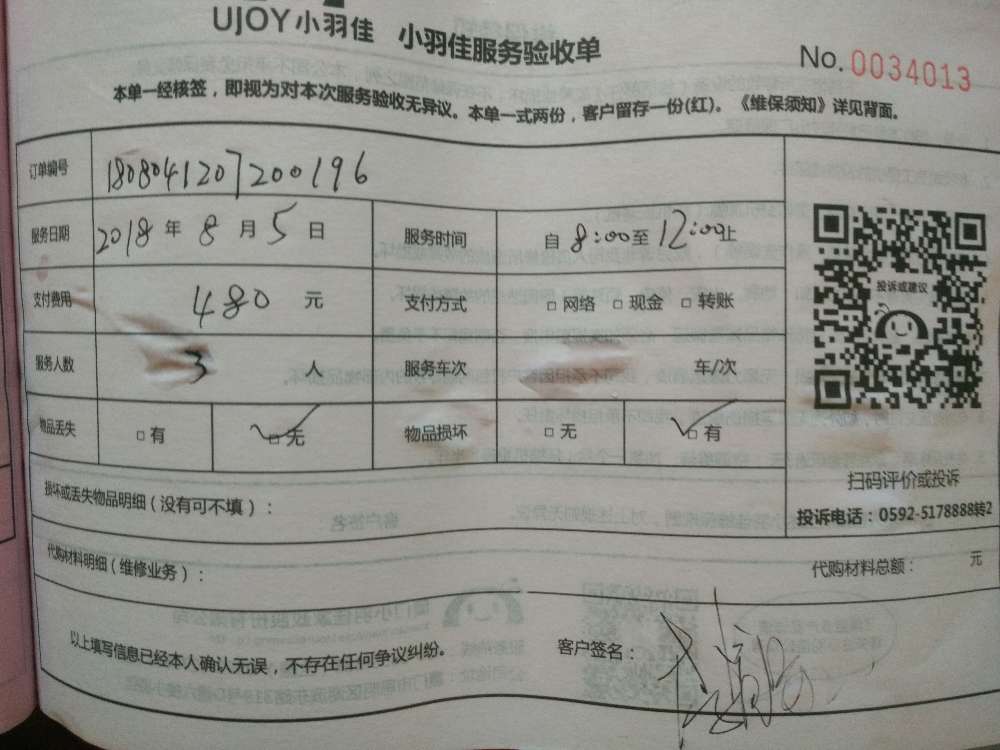 UJOY小羽佳 小羽佳服务验收单
No. 0034013
本单一经核签，即视为对本次服务验收无异议。本单一式两份，客户留存一份(红)。《维保须知》详见背面。
订单编号 1808041207200196
服务日期 2018年8月5日 服务时间 自8:00至12:00止
支付费用 480元 支付方式 □网络 □现金 □转账
服务人数 3人 服务车次 车/次
物品丢失 □有 ☑无 物品损坏 □无 ☑有
投诉或建议
扫码评价或投诉
投诉电话：0592-5178888转2
损坏或丢失物品明细（没有可不填）：
代购材料明细（维修业务）： 代购材料总额： 元
以上填写信息已经本人确认无误，不存在任何争议纠纷。 客户签名：